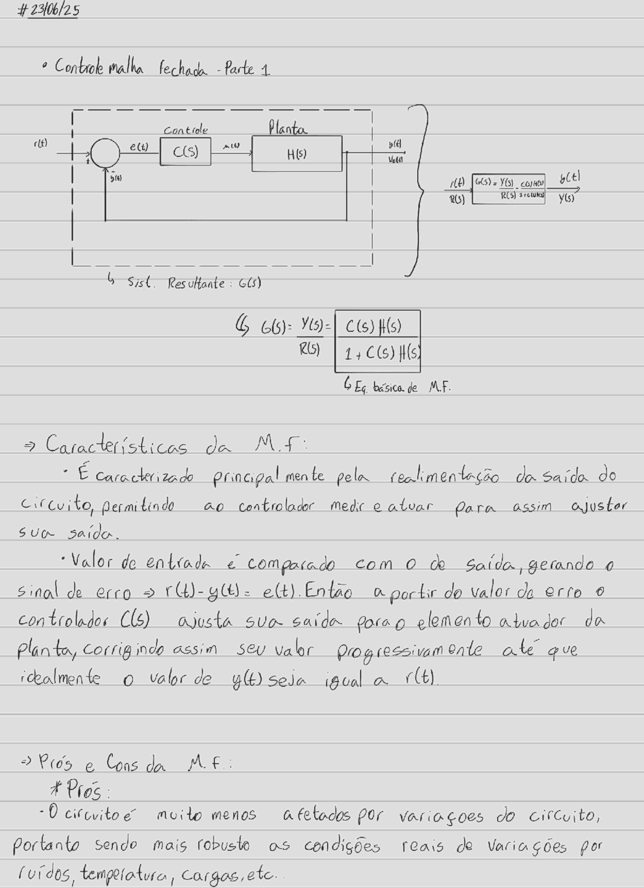 # 23/06/25
• Controle malha fechada - Parte 1
Controle
Planta
r(t)
e(t)
C(S)
H(S)
y(t)
y(t)
r(t)
R(S)
G(S) = Y(S)
R(S)
y(t)
Y(S)
↳ Sist. Resultante: G(S)
↳ G(S) = Y(S) = C(S) H(S)
R(S) 1 + C(S) H(S)
↳ Eq. básica de M.F.
⇒ Características da M.F:
• É caracterizado principalmente pela realimentação da saída do
circuito, permitindo ao controlador medir e atuar para assim ajustar
sua saída.
• Valor de entrada é comparado com o de saída, gerando o
sinal de erro ⇒ r(t) - y(t) = e(t). Então a partir do valor de erro o
controlador C(S) ajusta sua saída para o elemento atuador da
planta, corrigindo assim seu valor progressivamente até que
idealmente o valor de y(t) seja igual a r(t).
⇒ Prós e Cons da M.F:
* Prós:
• O circuito é muito menos afetados por variações do circuito,
portanto sendo mais robusto as condições reais de variações por
ruídos, temperatura, cargas, etc.